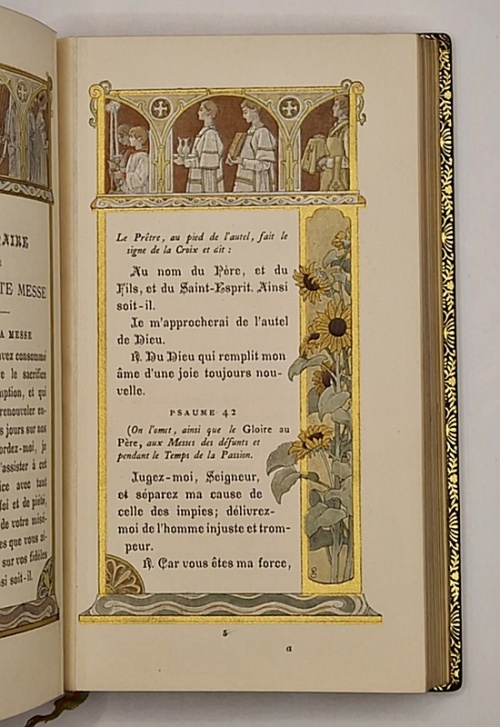 AIRE
TE MESSE
A MESSE
avez consommé
re le sacrifice
mption, et qui
renouveler en-
jours sur nos
ordez-moi, je
d'assister à cet
fice avec tant
foi et de piété,
de votre misé-
es que vous ai-
sur vos fidèles
si soit-il.
Le Prêtre, au pied de l'autel, fait le
signe de la Croix et dit :
Au nom du Père, et du
Fils, et du Saint-Esprit. Ainsi
soit-il.
Je m'approcherai de l'autel
de Dieu.
R. Du Dieu qui remplit mon
âme d'une joie toujours nou-
velle.
PSAUME 42
(On l'omet, ainsi que le Gloire au
Père, aux Messes des défunts et
pendant le Temps de la Passion.
Jugez-moi, Seigneur,
et séparez ma cause de
celle des impies; délivrez-
moi de l'homme injuste et trom-
peur.
R. Car vous êtes ma force,
5
a